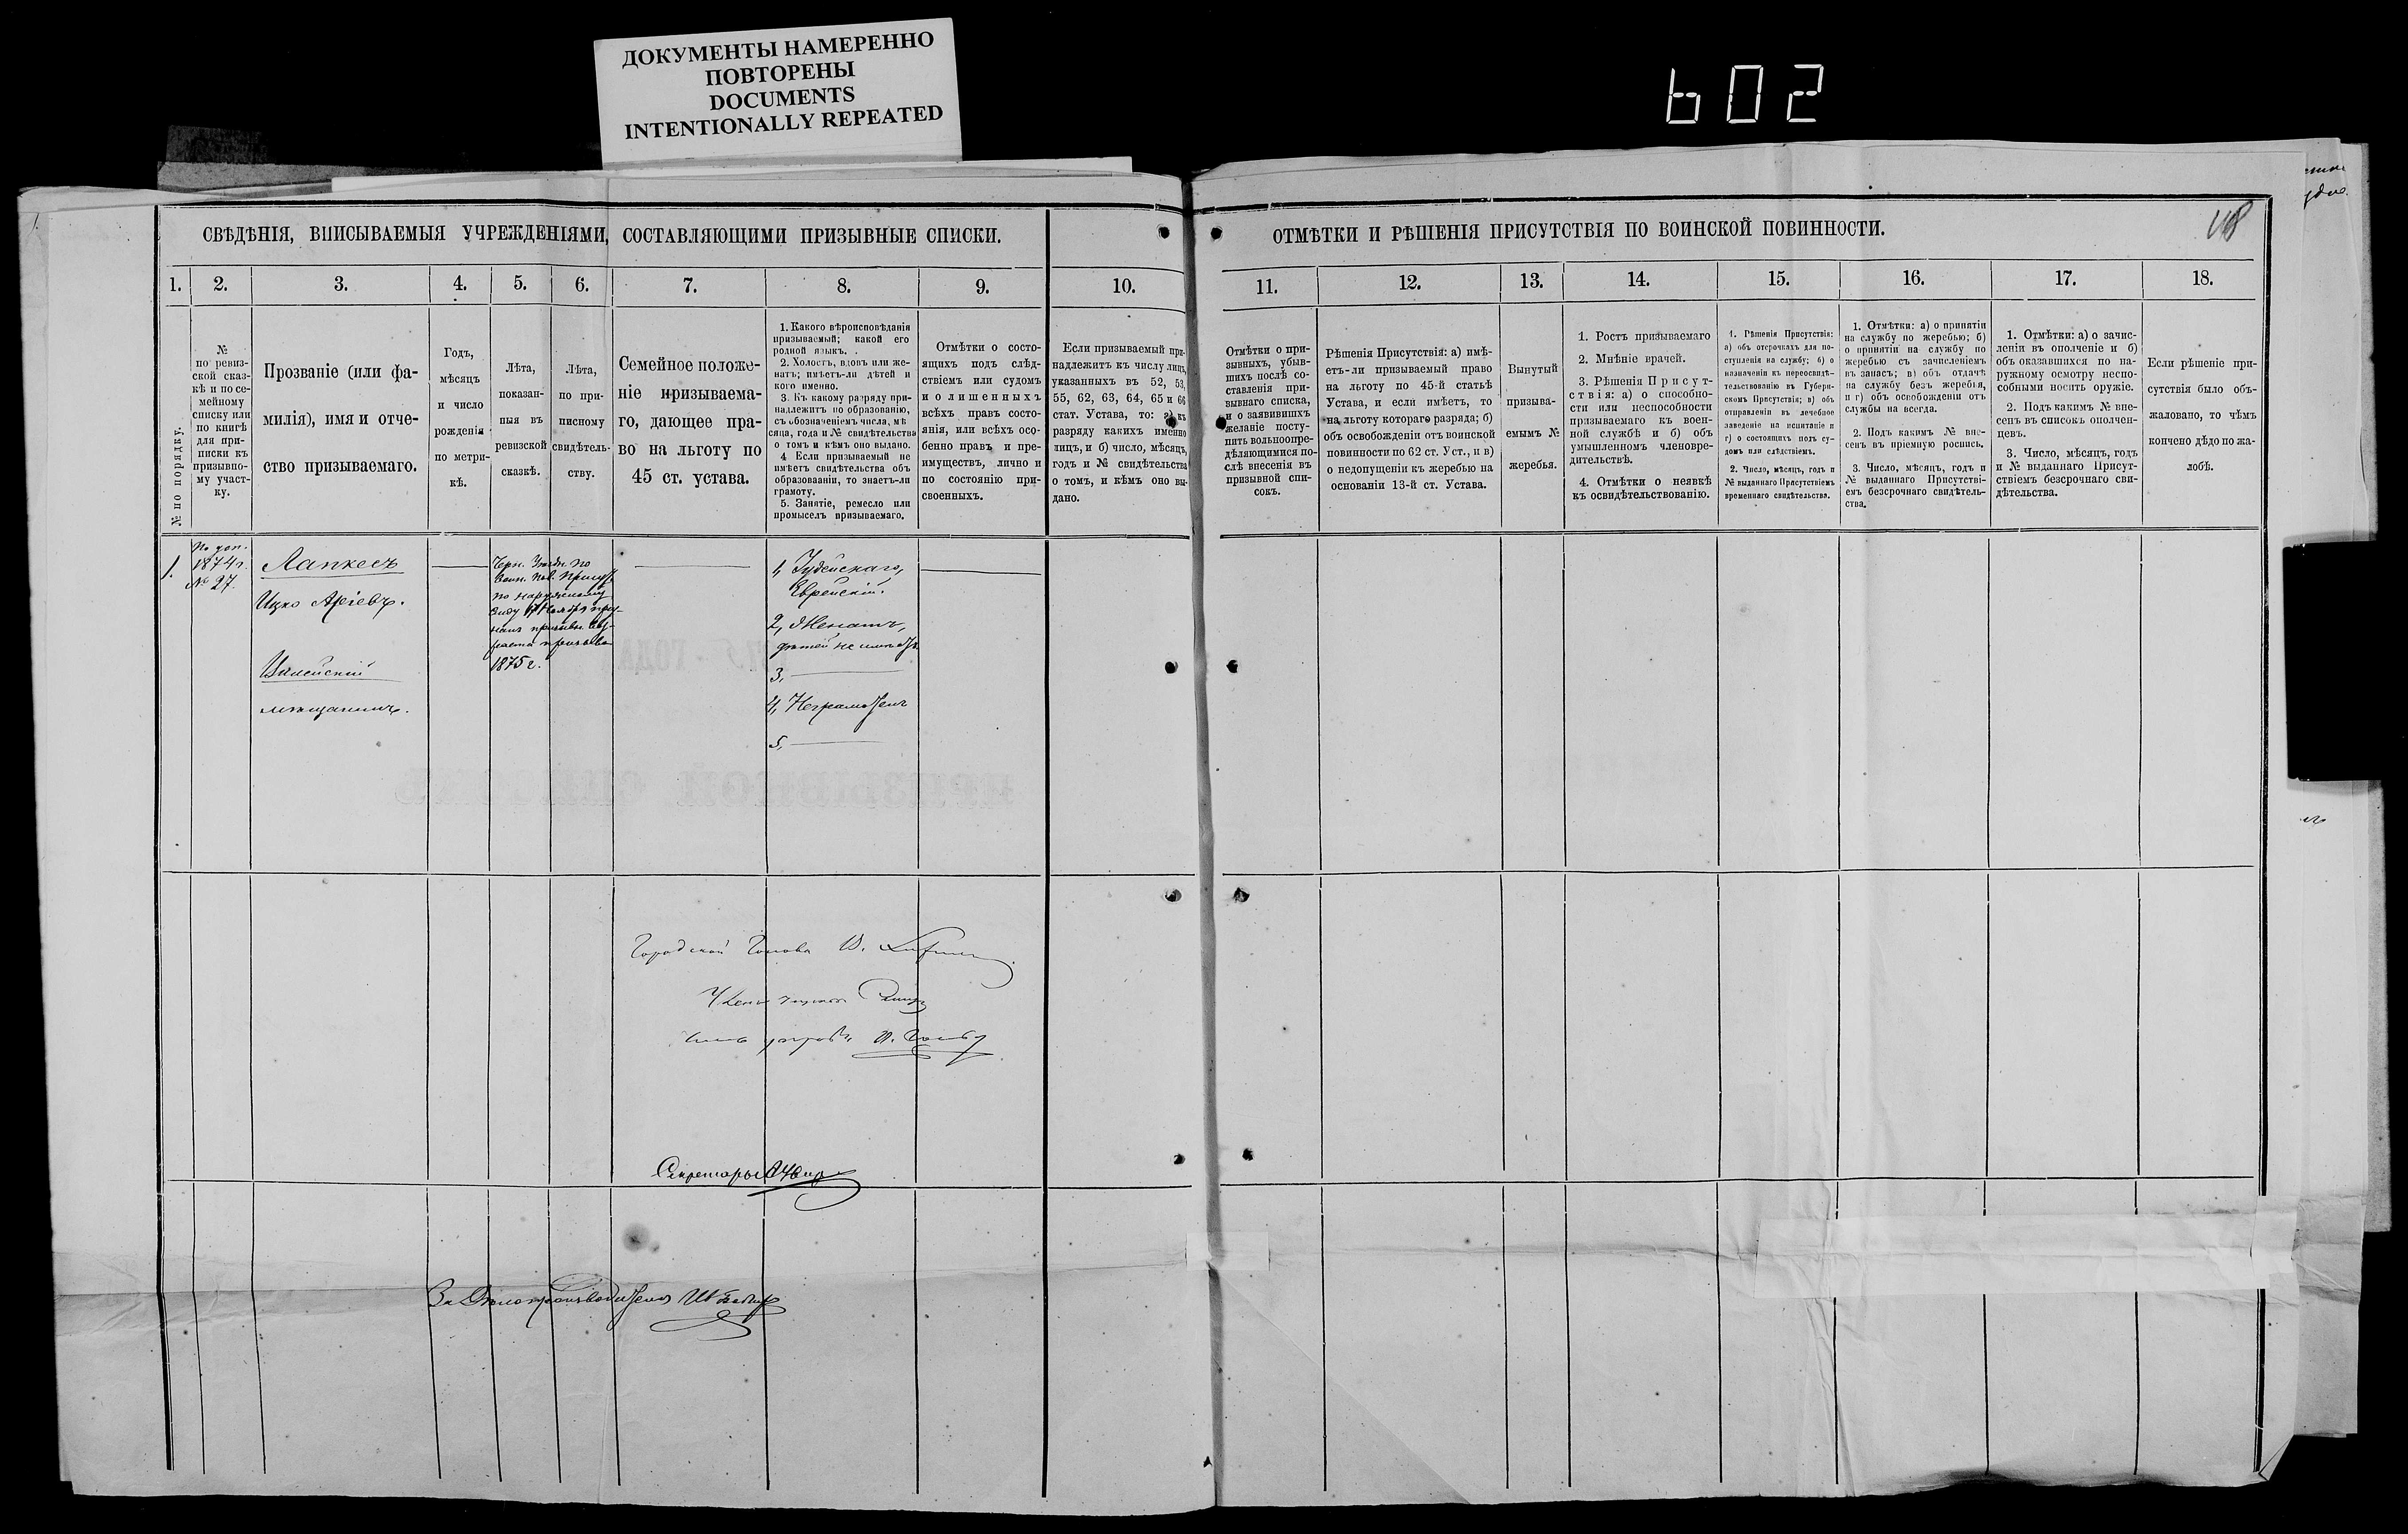 ДОКУМЕНТЫ НАМЕРЕННО
ПОВТОРЕНЫ
DOCUMENTS
INTENTIONALLY REPEATED
602
СВѢДѢНІЯ, ВПИСЫВАЕМЫЯ УЧРЕЖДЕНІЯМИ, СОСТАВЛЯЮЩИМИ ПРИЗЫВНЫЕ СПИСКИ.
1.
2.
3.
4.
5.
6.
7.
8.
9.
10.
№ по порядку.
№
по ревиз-
ской сказ-
кѣ и по се-
мейному
списку или
по книгѣ
для при-
писки къ
призывно-
му участ-
ку.
Прозваніе (или фа-
милія), имя и отче-
ство призываемаго.
Годъ,
мѣсяцъ
и число
рожденія
по метри-
кѣ.
Лѣта,
показан-
ныя въ
ревизской
сказкѣ.
Лѣта,
по при-
писному
свидѣтель-
ству.
Семейное положе-
ніе призываема-
го, дающее пра-
во на льготу по
45 ст. устава.
1. Какого вѣроисповѣданія
призываемый; какой его
родной языкъ.
2. Холостъ, вдовъ или же-
натъ; имѣетъ-ли дѣтей и
кого именно.
3. Къ какому разряду при-
надлежитъ по образованію,
съ обозначеніемъ числа, мѣ
сяца, года и № свидѣтельства
о томъ и кѣмъ оно выдано.
4 Если призываемый не
имѣетъ свидѣтельства объ
образованіи, то знаетъ-ли
грамоту.
5. Занятіе, ремесло или
промыселъ призываемаго.
Отмѣтки о состо-
ящихъ подъ слѣд-
ствіемъ или судомъ
и о лишенныхъ
всѣхъ правъ состо-
янія, или всѣхъ осо-
бенно правъ и пре-
имуществъ, лично и
по состоянію при-
своенныхъ.
Если призываемый при-
надлежитъ къ числу лицъ,
указанныхъ въ 52, 53,
55, 62, 63, 64, 65 и 66
стат. Устава, то: а) къ
разряду какихъ именно
лицъ, и б) число, мѣсяцъ,
годъ и № свидѣтельства
о томъ, и кѣмъ оно вы-
дано.
1.
По доп.
1874 г.
№ 27.
Лапкесъ
Ицко Аріевъ.
Вилейскій
мѣщанинъ.
по наружному
1875 г.
1, Іудейскаго,
Еврейскій.
2, Женатъ,
дѣтей не имѣетъ
3,
4, Неграмотенъ
5,
Городской Голова
Секретарь
За Дѣлопроизводителя
ОТМѢТКИ И РѢШЕНІЯ ПРИСУТСТВІЯ ПО ВОИНСКОЙ ПОВИННОСТИ.
11.
12.
13.
14.
15.
16.
17.
18.
Отмѣтки о при-
зывныхъ, убыв-
шихъ послѣ со-
ставленія при-
зывнаго списка,
и о заявившихъ
желаніе посту-
пить вольноопре-
дѣляющимися по-
слѣ внесенія въ
призывной спи-
сокъ.
Рѣшенія Присутствія: а) имѣ-
етъ-ли призываемый право
на льготу по 45-й статьѣ
Устава, и если имѣетъ, то
на льготу котораго разряда; б)
объ освобожденіи отъ воинской
повинности по 62 ст. Уст., и в)
о недопущеніи къ жеребью на
основаніи 13-й ст. Устава.
Вынутый
призыва-
емымъ №
жеребья.
1. Ростъ призываемаго
2. Мнѣніе врачей.
3. Рѣшенія Присут-
ствія: а) о способно-
сти или неспособности
призываемаго къ воен-
ной службѣ и б) объ
умышленномъ членовре-
дительствѣ.
4. Отмѣтки о неявкѣ
къ освидѣтельствованію.
1. Рѣшенія Присутствія:
а) объ отсрочкахъ для по-
ступленія на службу; б) о
назначеніи къ переосвидѣ-
тельствованію въ Губерн-
скомъ Присутствіи; в) объ
отправленіи въ лечебное
заведеніе на испытаніе и
г) о состоящихъ подъ су-
домъ или слѣдствіемъ.
2. Число, мѣсяцъ, годъ и
№ выданнаго Присутствіемъ
временнаго свидѣтельства.
1. Отмѣтки: а) о принятіи
на службу по жеребью; б)
о принятіи на службу по
жеребью съ зачисленіемъ
въ запасъ; в) объ отдачѣ
на службу безъ жеребья,
и г) объ освобожденіи отъ
службы на всегда.
2. Подъ какимъ № вне-
сенъ въ пріемную роспись.
3. Число, мѣсяцъ, годъ и
№ выданнаго Присутстві-
емъ безсрочнаго свидѣтель-
ства.
1. Отмѣтки: а) о зачис-
леніи въ ополченіе и б)
объ оказавшихся по на-
ружному осмотру неспо-
собными носить оружіе.
2. Подъ какимъ № вне-
сенъ въ списокъ ополчен-
цевъ.
3. Число, мѣсяцъ, годъ
и № выданнаго Присут-
ствіемъ безсрочнаго сви-
дѣтельства.
Если рѣшеніе при-
сутствія было объ-
жаловано, то чѣмъ
кончено дѣдо по жа-
лобѣ.